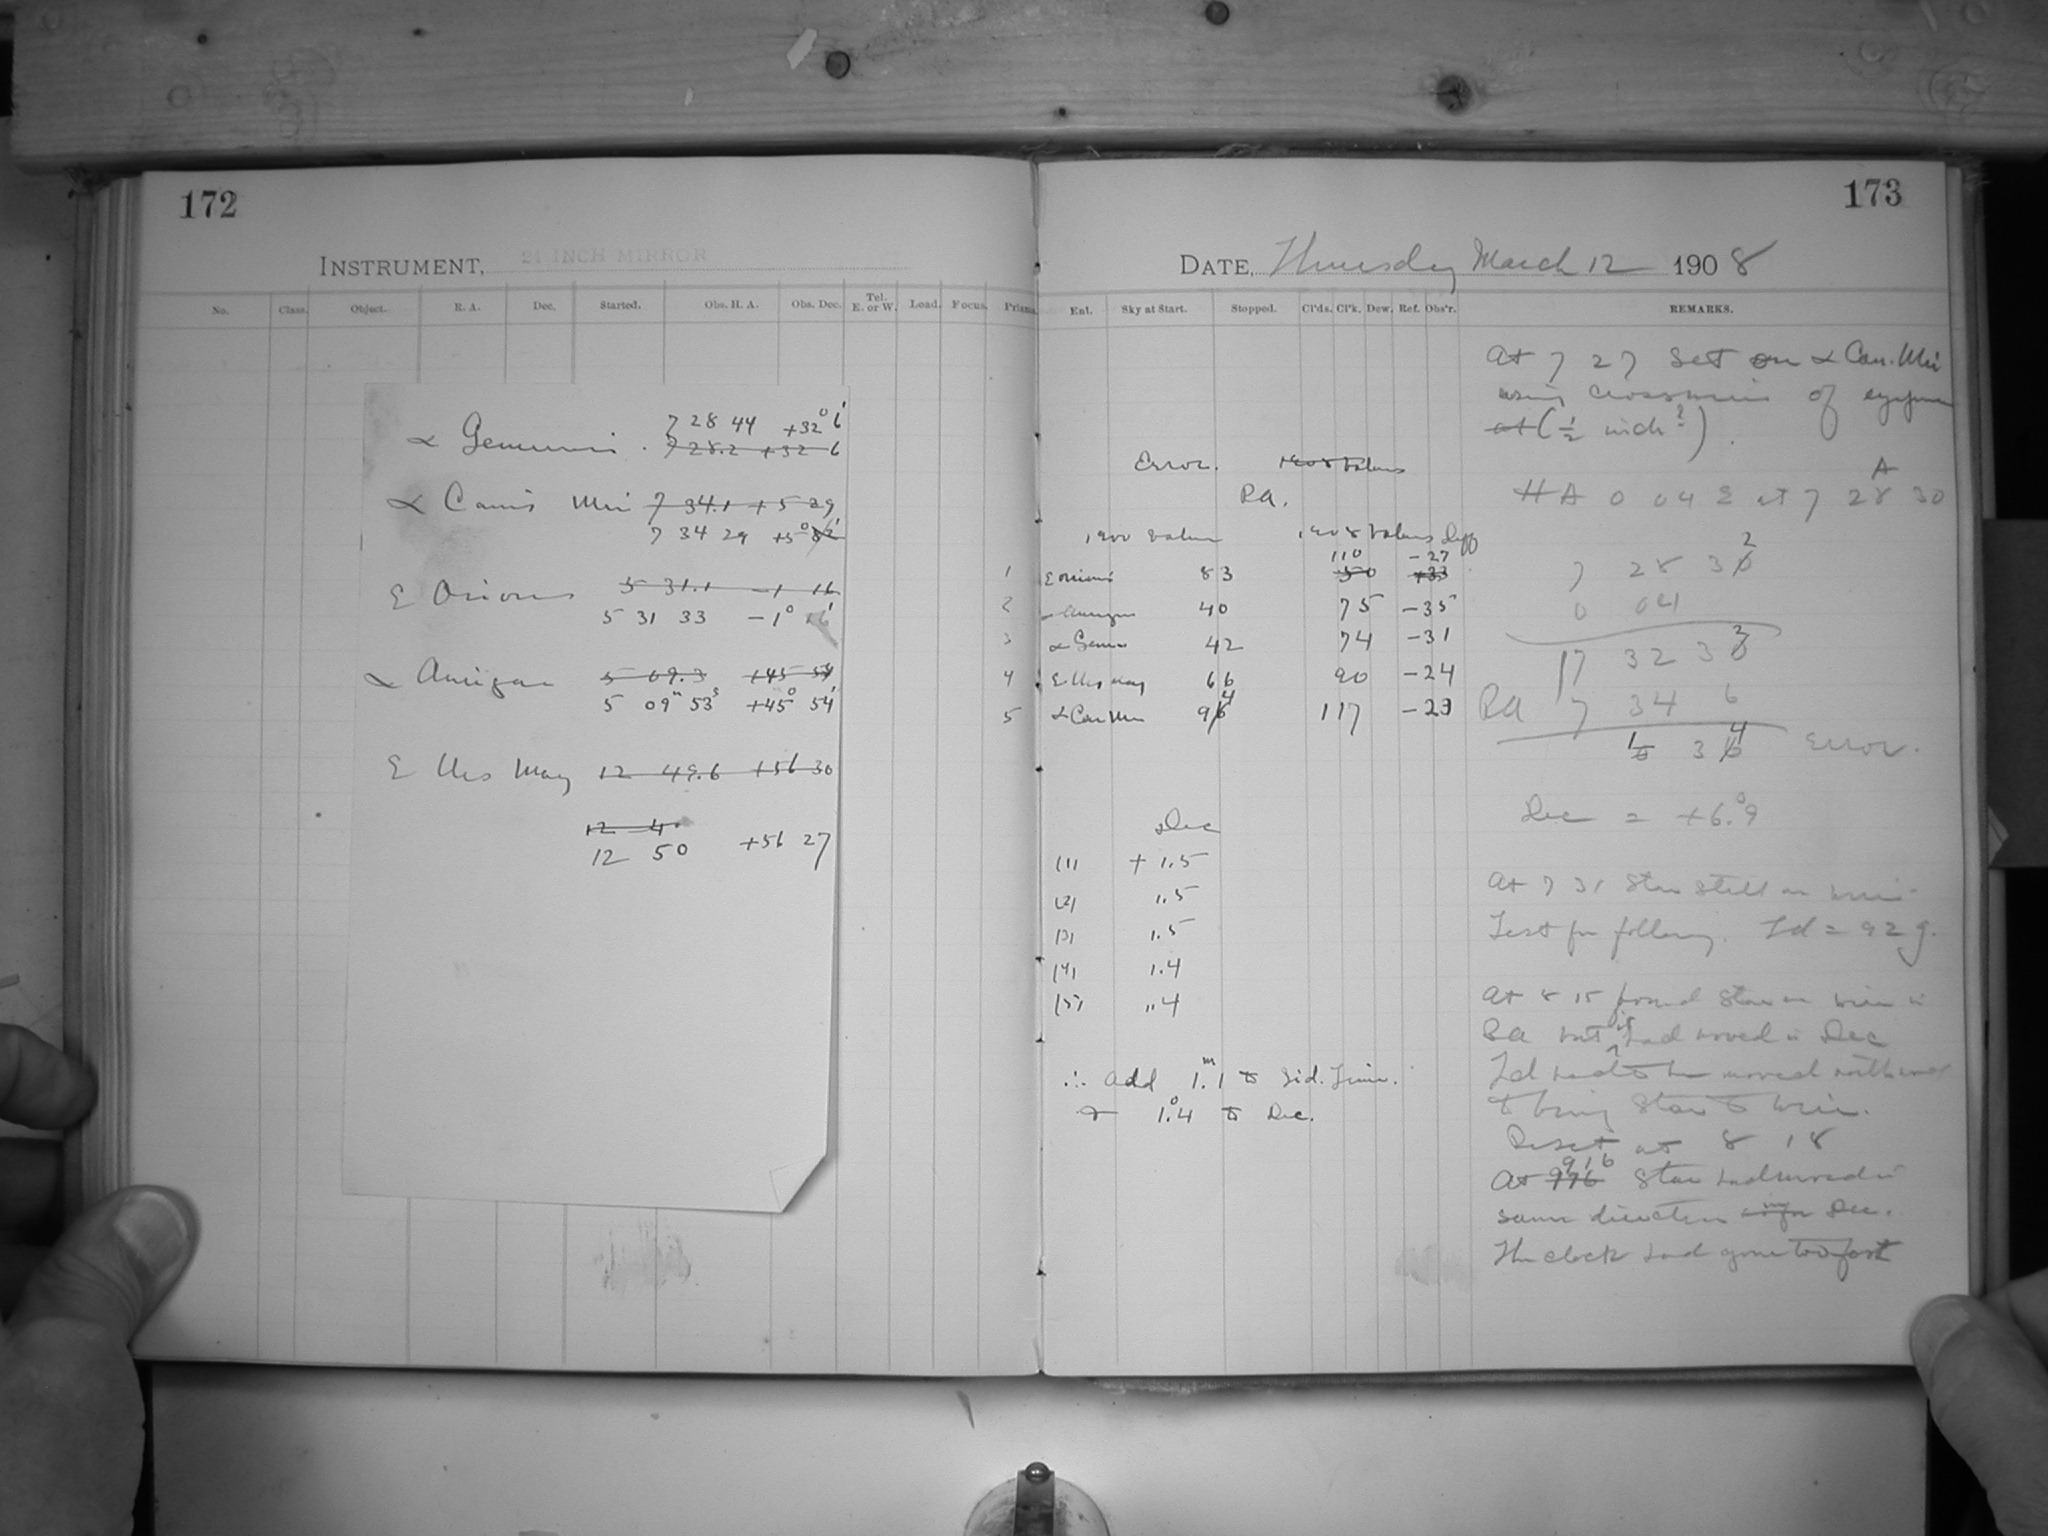 172
INSTRUMENT, 24 INCH MIRROR
No. Class. Object. R. A. Dec. Started. Obs. H. A. Obs. Dec. Tel. E. or W. Load. Focus. Prisms.
7 28 44 +32° 6'
α Geminori . 7 28.2 +32 6
α Canis Min 7 34.1 +5 29
7 34 29 +5°
ε Orionis 5 31.1 -1 16
5 31 33 -1° 16'
α Aurigae 5 09.3 +45 54
5 09m 53s +45° 54'
ε Urs May 12 49.6 +56 30
12 4
12 50 +56 27
173
DATE, Thursday March 12 1908
Ent. Sky at Start. Stopped. Cl'ds. Cl'k. Dew. Ref. Obs'r. REMARKS.
Error. 1908 Values
RA.
1900 Values 1908 Values Diff
110 -27
1 ε Orionis 83 50 +33
2 α Aurigae 40 75 -35
3 α Gem 42 74 -31
4 ε Urs May 66 90 -24
5 α Can Min 94 117 -23
Dec
(1) + 1.5
(2) 1.5
(3) 1.5
(4) 1.4
(5) 1.4
∴ Add 1.1m to Sid. Time.
+ 1.°4 to Dec.
At 7 27 set on α Can. Min
using crosswires of eyepiece
at (½ inch?).
HA 0 04 E at 7 28 30
7 28 32
0 04
17 32 3
RA 7 34 6
1 34 Error.
Dec = +6.°9
At 7 31 Star still on wire
Test for following. Ld = 92 g.
At 8 15 found Star on wire in
RA but it had moved in Dec
Ld had to be moved northward
to bring Star to wire.
Reset at 8 18
At 976 916 Star had moved in
same direction in Dec.
The clock had gone too fast